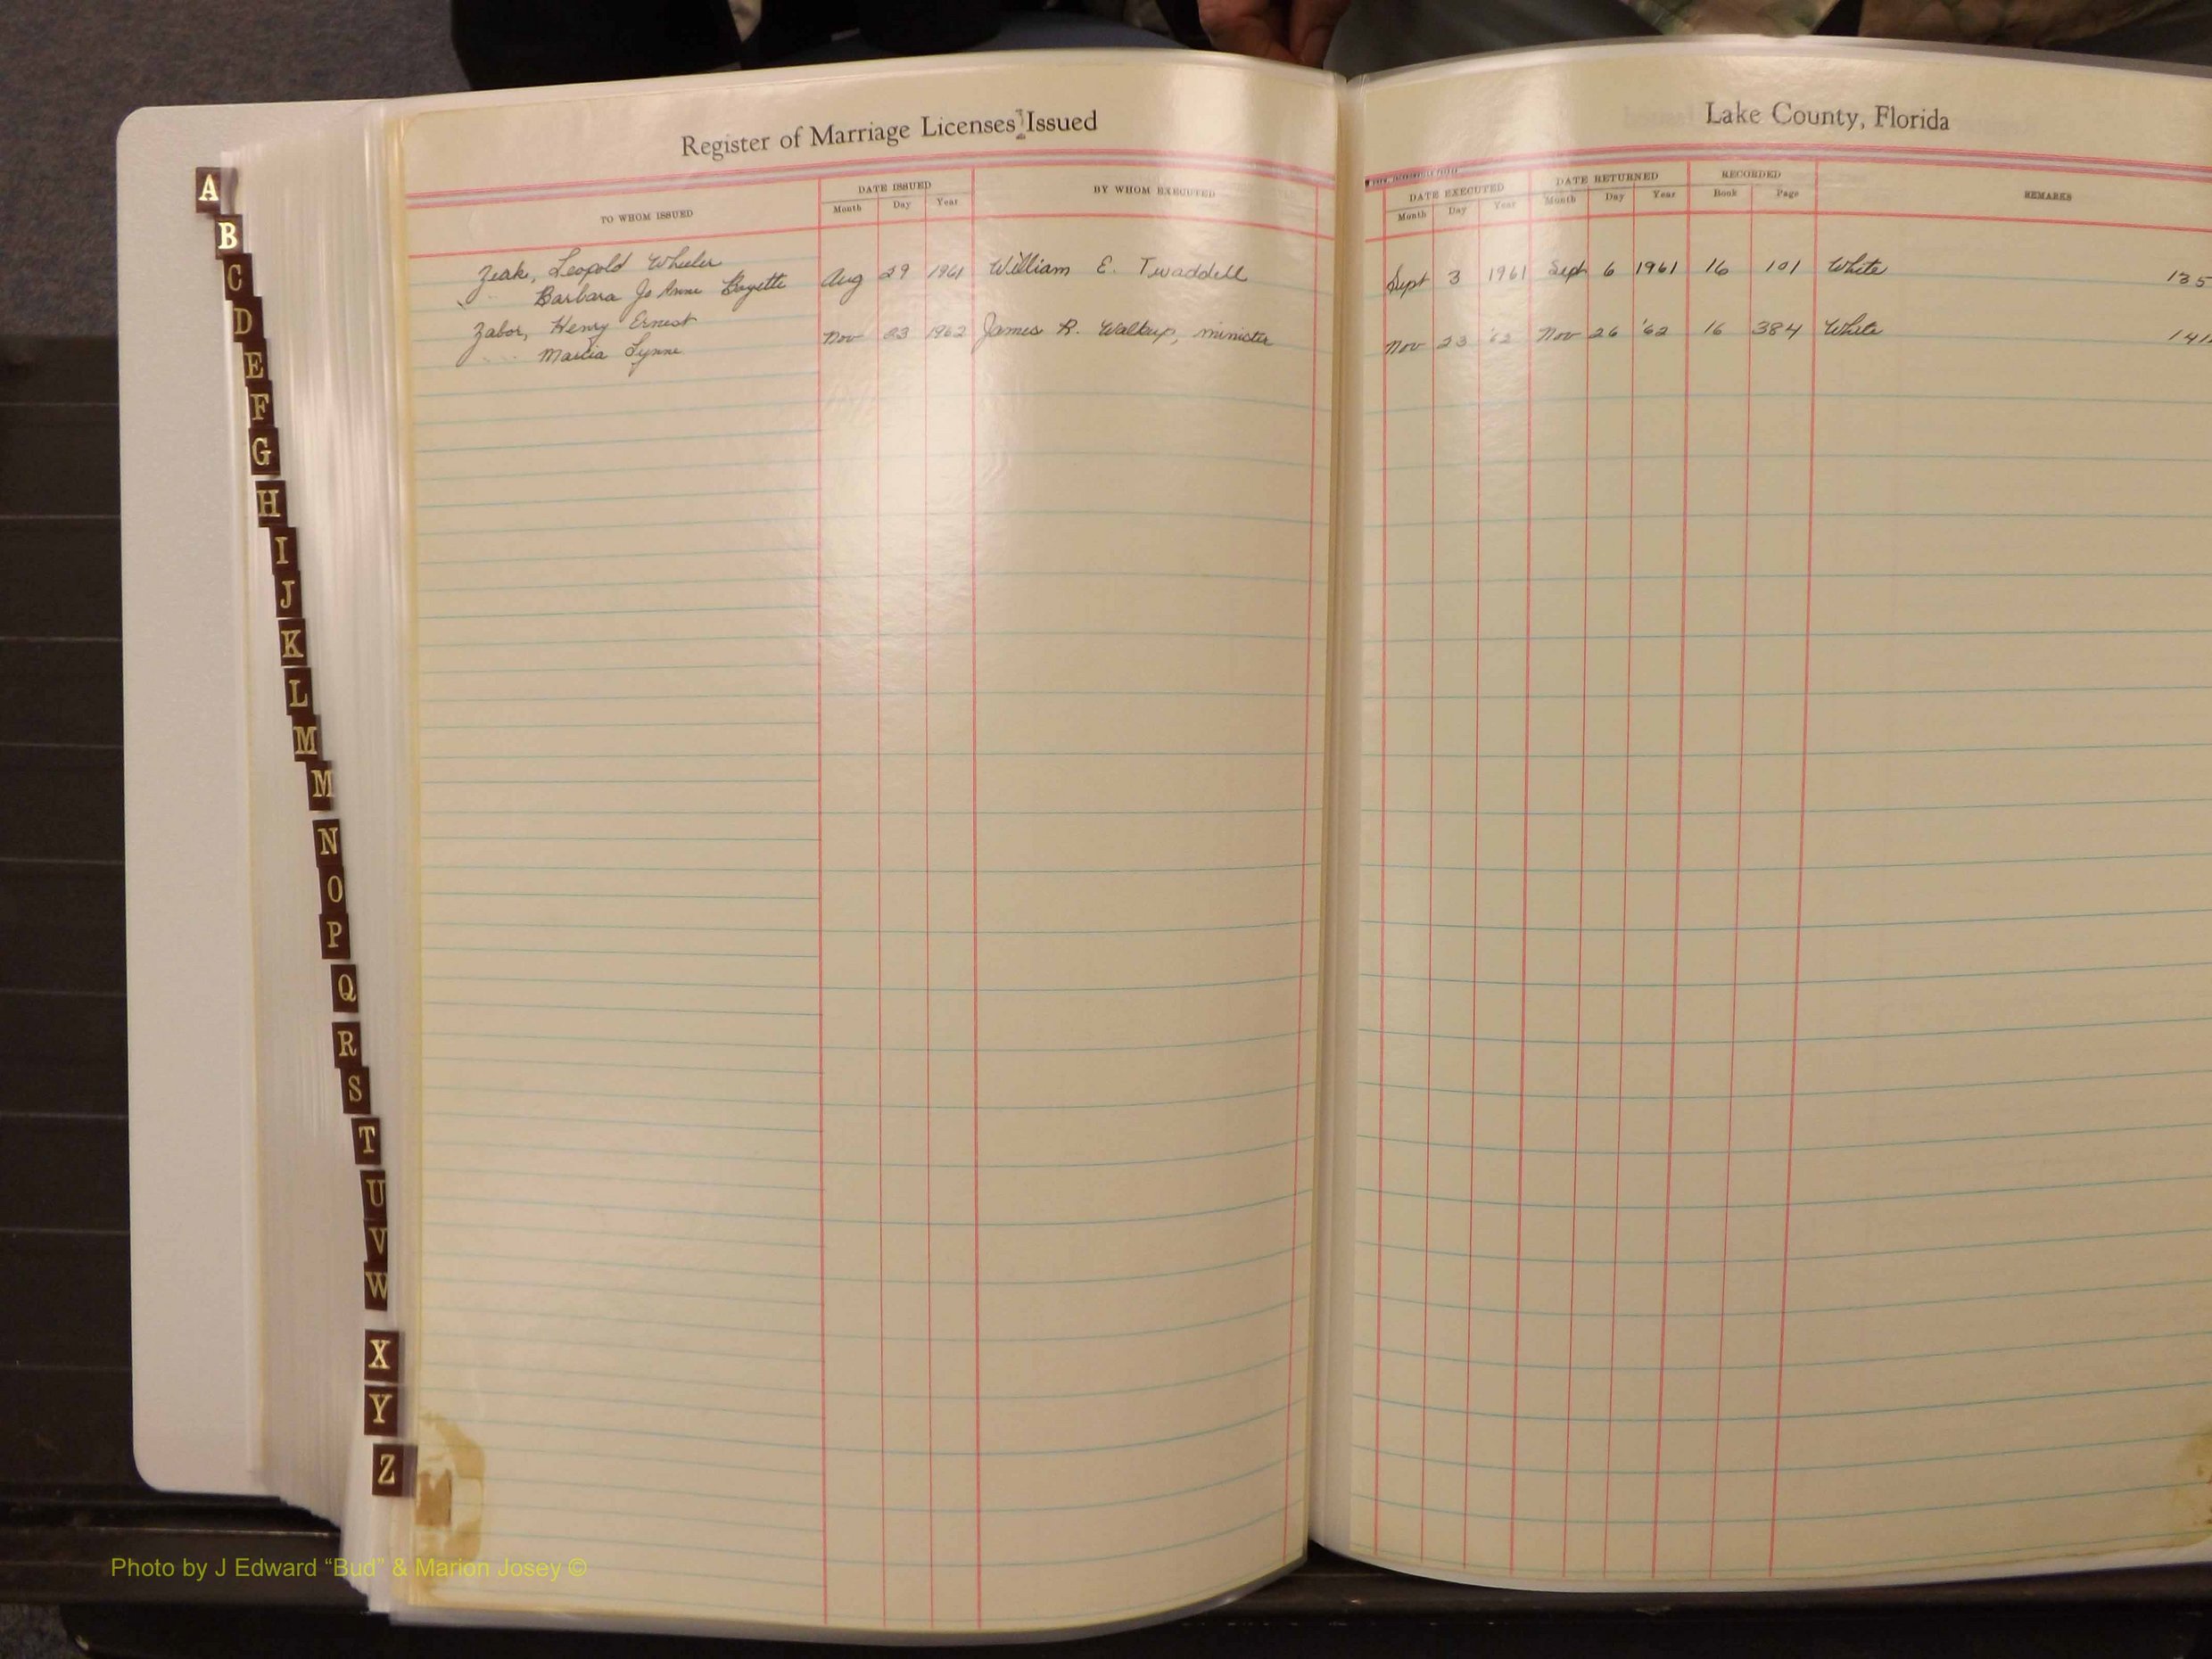 Register of Marriage Licenses Issued
TO WHOM ISSUED
DATE ISSUED
Month Day Year
BY WHOM EXECUTED
Zeak, Leopold Wheeler
Barbara Jo Anne Boyette
Aug 29 1961
William E. Twaddell
Zabor, Henry Ernest
Marcia Lynne
Nov 23 1962
James R. Walkup, minister
Lake County, Florida
DATE EXECUTED
Month Day Year
DATE RETURNED
Month Day Year
RECORDED
Book Page
REMARKS
Sept 3 1961 Sept 6 1961 16 101 White
Nov 23 '62 Nov 26 '62 16 384 White
A
B
C
D
E
F
G
H
I
J
K
L
M
M
N
O
P
Q
R
S
T
U
V
W
X
Y
Z
Photo by J Edward “Bud” & Marion Josey ©